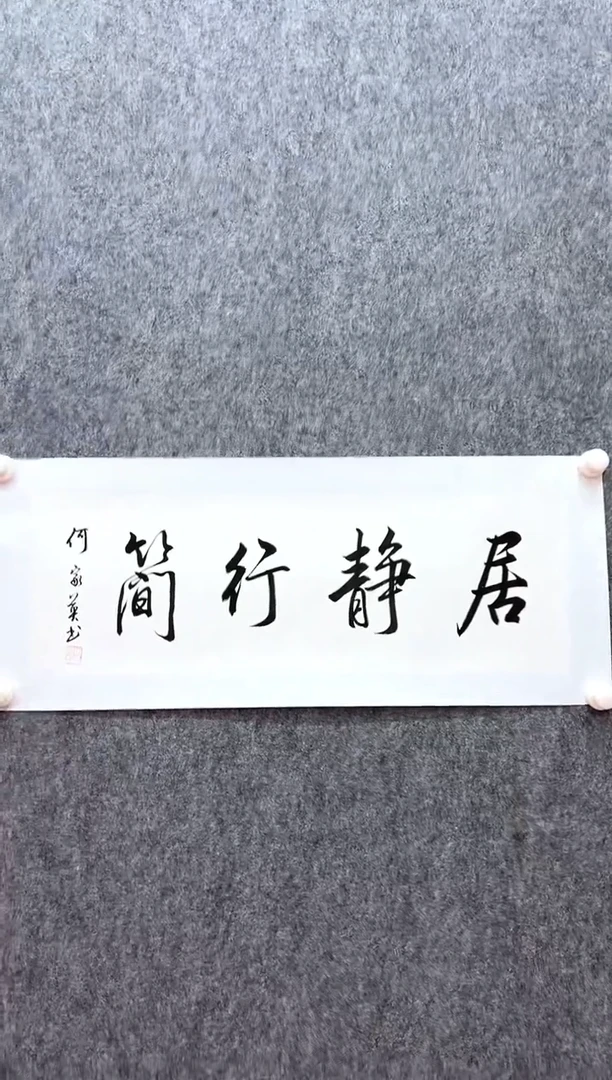 居静行简
何家英书